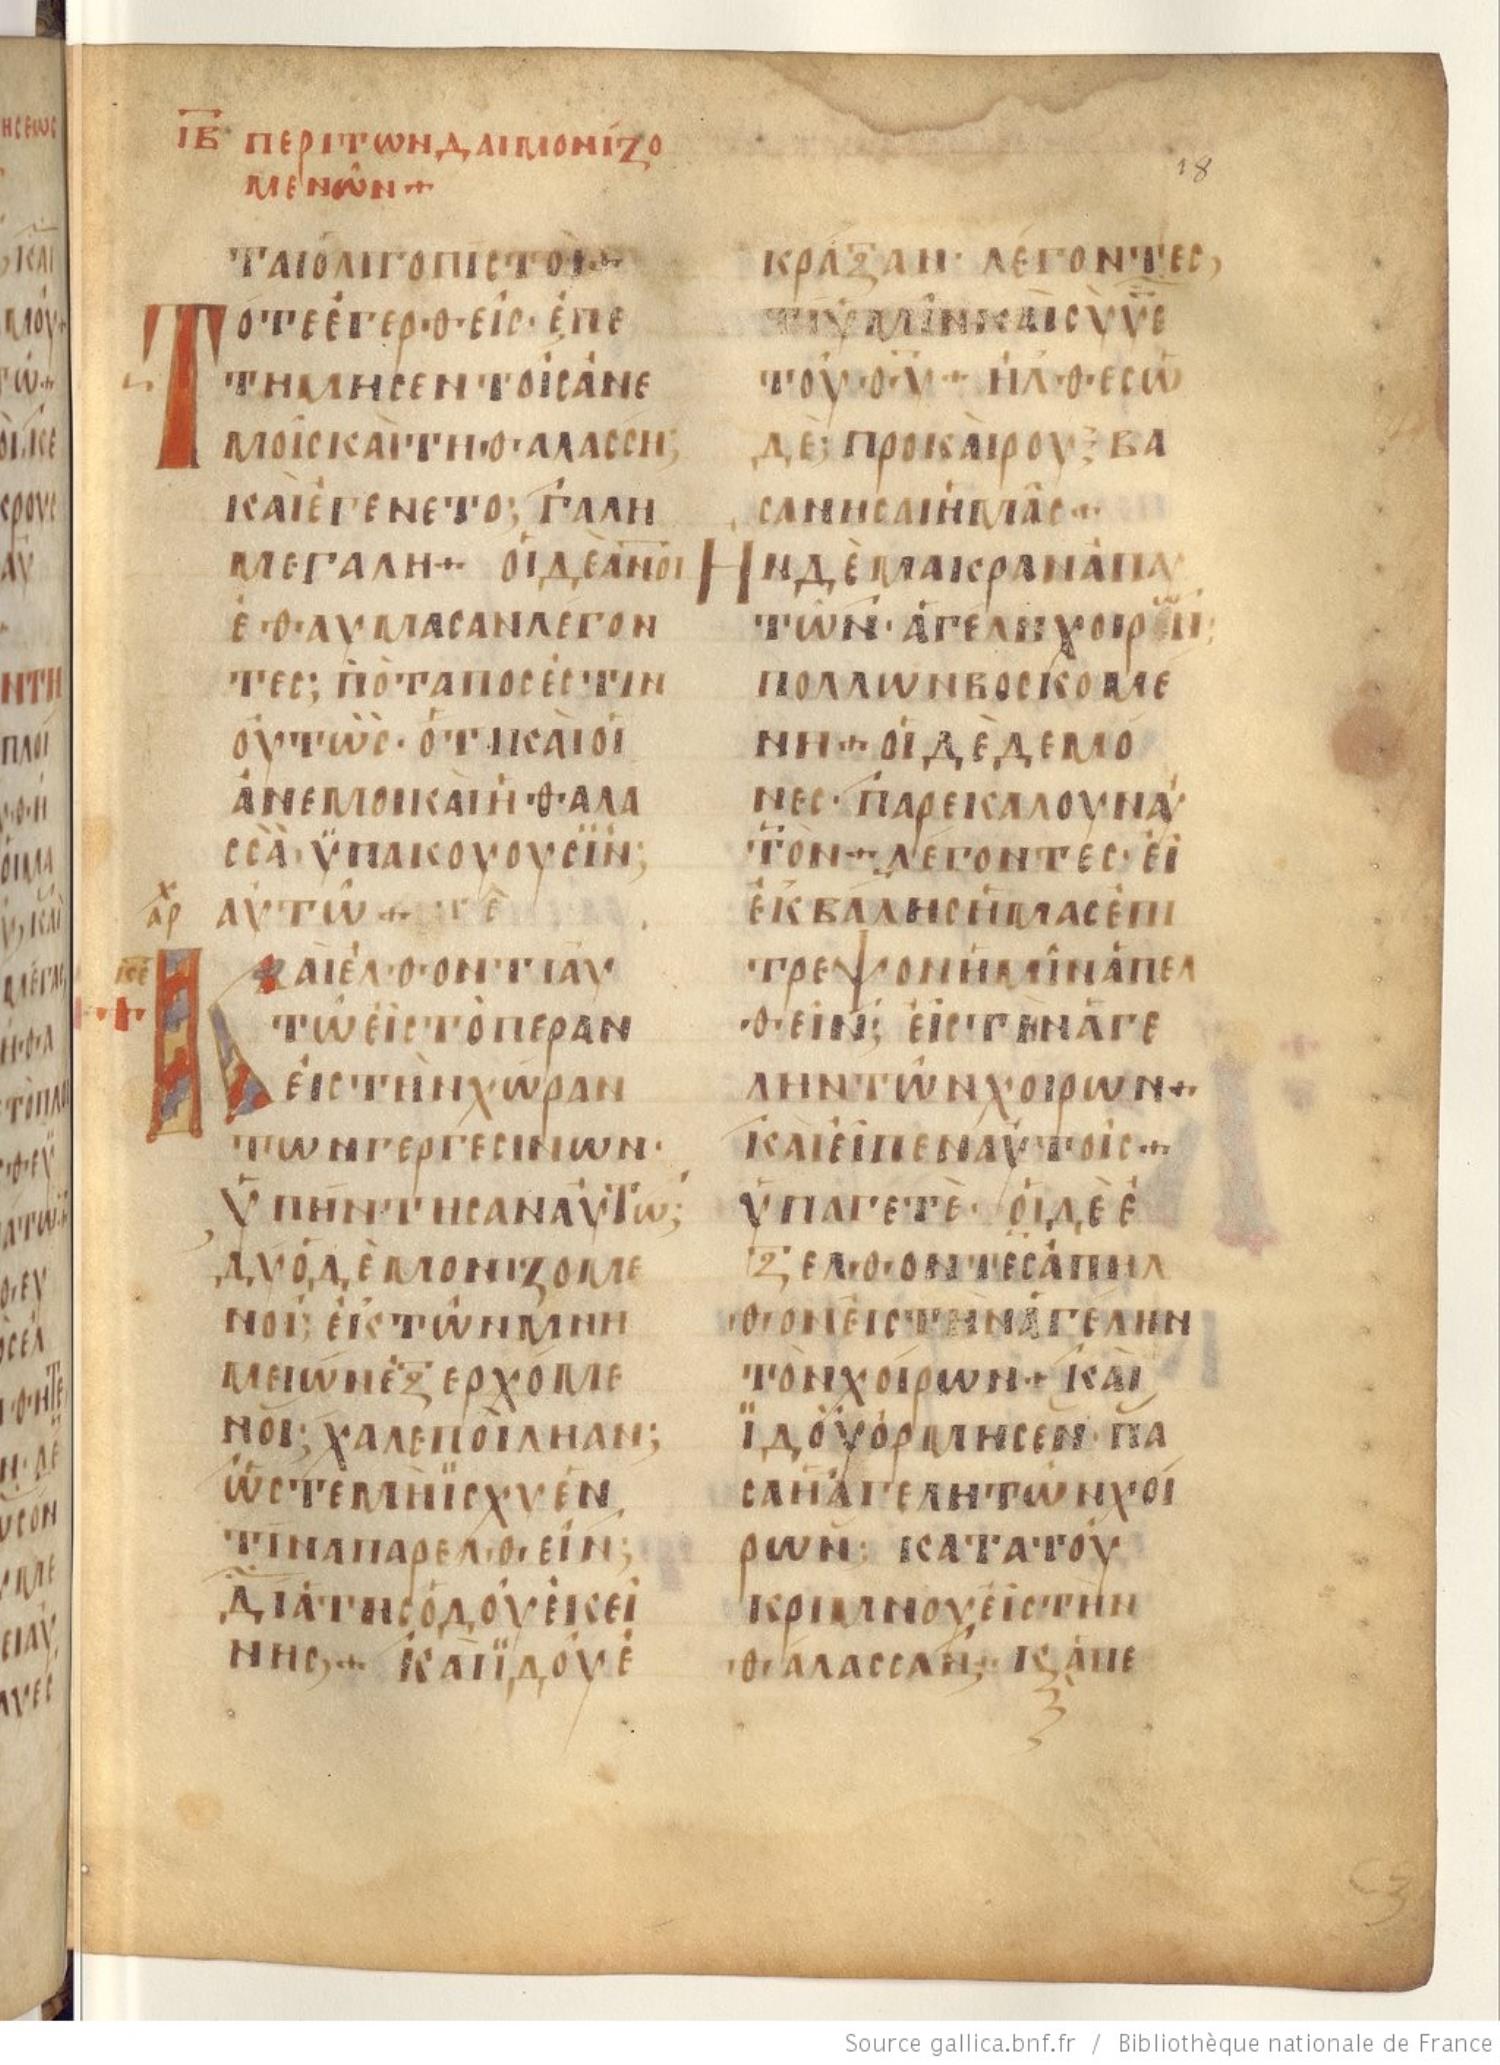 ΙΒ ΠΕΡΙ ΤΩΝ ΔΑΙΜΟΝΙΖΟ
ΜΕΝΩΝ+
18
ΤΑΙ ὈΛΙΓΟΠΙΣΤΟΙ+
ΤΌΤΕ ἘΓΕΡΘΕΙΣ· ἘΠΕ
ΤΗΜΗΣΕΝ ΤΟΙΣ ἈΝΕ
ΜΟΙΣ ΚΑΙ ΤΗ ΘΑΛΑΣΣΗ;
ΚΑΙ ἘΓΕΝΕΤΟ; ΓΑΛΗ
ΜΕΓΑΛΗ+ ΟΙ ΔΕ ΑΝΟΙ
ἘΘΑΥΜΑΣΑΝ ΛΕΓΟΝ
ΤΕΣ; ΠΟΤΑΠΟΣ ἘΣΤΙΝ
ΟΥΤΩΣ· ὉΤΗ ΚΑΙ ΟΙ
ἈΝΕΜΟΙ ΚΑΙ Η ΘΑΛΑ
ΣΣΑ· ΫΠΑΚΟΥΟΥΣΙΝ;
ΑΥΤΩ+
Χ
ΑΡ
ΚΑΙ ἘΛΘΟΝΤΙ ΑΥ
ΤΩ ΕΙΣ ΤΟ ΠΕΡΑΝ
ΕΙΣ ΤΗΝ ΧΩΡΑΝ
ΤΩΝ ΓΕΡΓΕΣΙΝΩΝ·
ΥΠΗΝΤΗΣΑΝ ΑΥΤΩ;
ΔΥΟ ΔΕΜΟΝΙΖΟΜΕ
ΝΟΙ; ΕΚ ΤΩΝ ΜΝΗ
ΜΕΙΩΝ ἘΞΕΡΧΟΜΕ
ΝΟΙ; ΧΑΛΕΠΟΙ ΛΗΑΝ;
ΩΣΤΕ ΜΗ ΙΣΧΥΕΝ
ΤΙΝΑ ΠΑΡΕΛΘΕΙΝ;
ΔΙΑ ΤΗΣ ΟΔΟΥ ΕΚΕΙ
ΝΗΣ,+ ΚΑΙ ΪΔΟΥ Ἐ
ΚΡΑΞΑΝ· ΛΕΓΟΝΤΕΣ,
ΤΙ ΥΜΙΝ ΚΑΙ ΣΥ ΥΕ
ΤΟΥ ΘΥ+ ΗΛΘΕΣ Ω
ΔΕ; ΠΡΟ ΚΑΙΡΟΥ; ΒΑ
ΣΑΝΗΣΑΙ ΗΜΑΣ+
ΗΝ ΔΕ ΜΑΚΡΑΝ ἈΠ ΑΥ
ΤΩΝ· ἈΓΕΛΗ ΧΟΙΡΩΝ;
ΠΟΛΛΩΝ ΒΟΣΚΟΜΕ
ΝΗ+ ΟΙ ΔΕ ΔΕΜΟ
ΝΕΣ· ΠΑΡΕΚΑΛΟΥΝ ΑΥ
ΤΟΝ+ ΛΕΓΟΝΤΕΣ· ΕΙ
ἘΚΒΑΛΗΣ ΗΜΑΣ ἘΠΙ
ΤΡΕΨΟΝ ΗΜΙΝ ἈΠΕΛ
ΘΕΙΝ; ΕΙΣ ΤΗΝ ἈΓΕ
ΛΗΝ ΤΩΝ ΧΟΙΡΩΝ+
ΚΑΙ ΕΙΠΕΝ ΑΥΤΟΙΣ+
ΥΠΑΓΕΤΕ· ΟΙ ΔΕ Ἐ
ΞΕΛΘΟΝΤΕΣ ἈΠΗΛ
ΘΟΝ ΕΙΣ ΤΗΝ ἈΓΕΛΗΝ
ΤΟΝ ΧΟΙΡΩΝ+ ΚΑΙ
ΪΔΟΥ ΟΡΜΗΣΕΝ· ΠΑ
ΣΑ Η ἈΓΕΛΗ ΤΩΝ ΧΟΙ
ΡΩΝ; ΚΑΤΑ ΤΟΥ
ΚΡΙΜΝΟΥ ΕΙΣ ΤΗΝ
ΘΑΛΑΣΣΑΝ;+ Κ ἈΠΕ
Source gallica.bnf.fr / Bibliothèque nationale de France